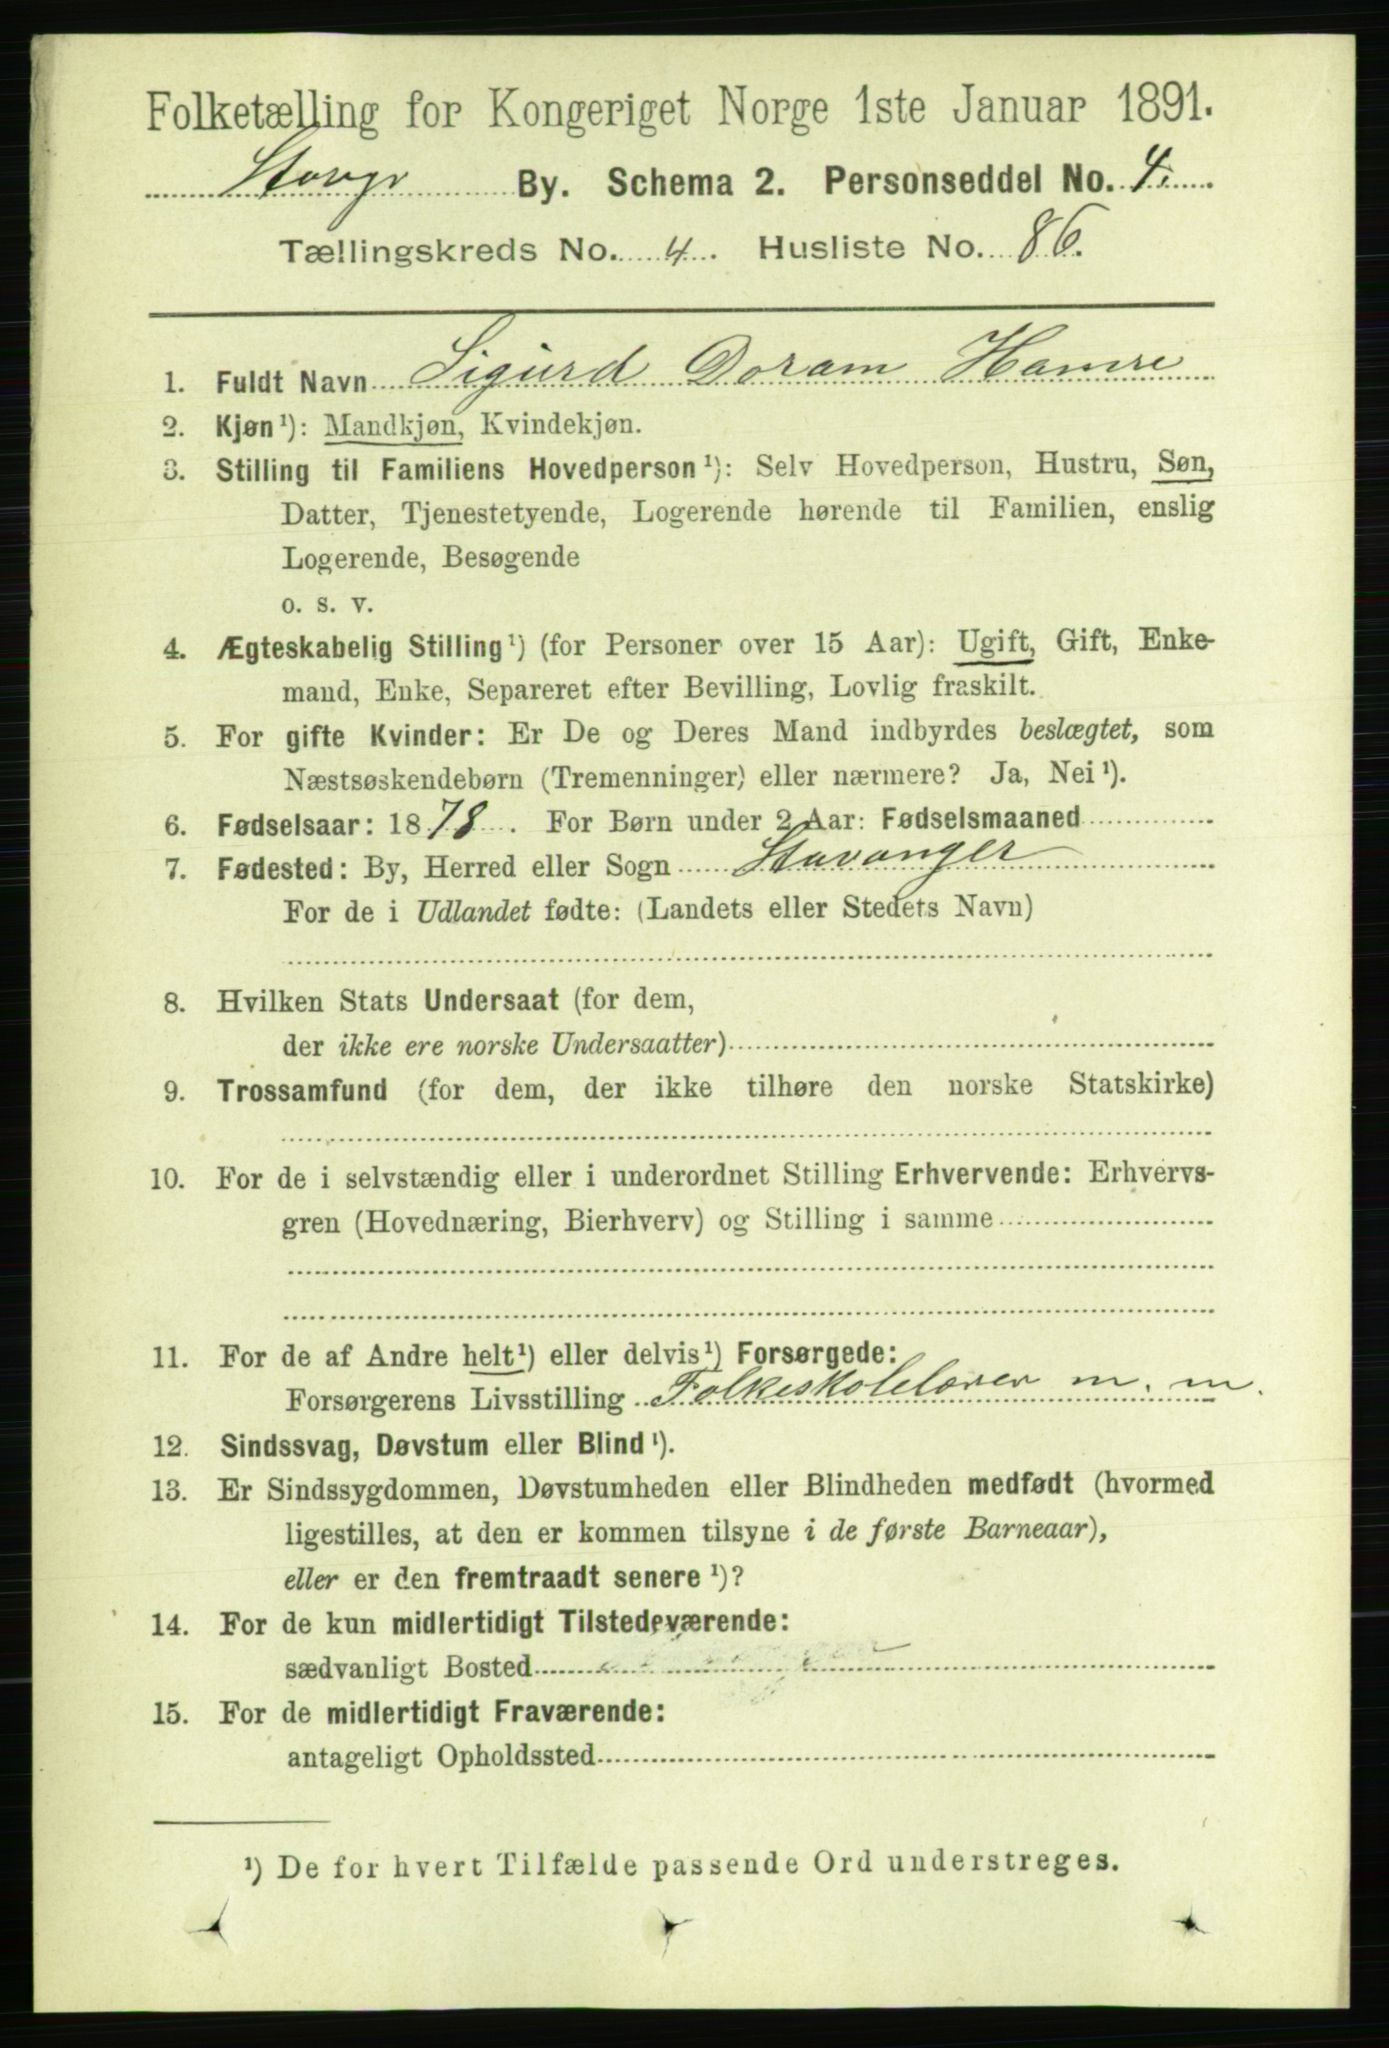 Folketælling for Kongeriget Norge 1ste Januar 1891.
Stavgr By. Schema 2. Personseddel No. 4.
Tællingskreds No. 4. Husliste No. 86.
1. Fuldt Navn Sigurd Doram Hamre
2. Kjøn ¹): Mandkjøn, Kvindekjøn.
3. Stilling til Familiens Hovedperson ¹): Selv Hovedperson, Hustru, Søn,
Datter, Tjenestetyende, Logerende hørende til Familien, enslig
Logerende, Besøgende
o. s. v.
4. Ægteskabelig Stilling ¹) (for Personer over 15 Aar): Ugift, Gift, Enke-
mand, Enke, Separeret efter Bevilling, Lovlig fraskilt.
5. For gifte Kvinder: Er De og Deres Mand indbyrdes beslægtet, som
Næstsøskendebørn (Tremenninger) eller nærmere? Ja, Nei ¹).
6. Fødselsaar: 1878. For Børn under 2 Aar: Fødselsmaaned
7. Fødested: By, Herred eller Sogn Stavanger
For de i Udlandet fødte: (Landets eller Stedets Navn)
8. Hvilken Stats Undersaat (for dem,
der ikke ere norske Undersaatter)
9. Trossamfund (for dem, der ikke tilhøre den norske Statskirke)
10. For de i selvstændig eller i underordnet Stilling Erhvervende: Erhvervs-
gren (Hovednæring, Bierhverv) og Stilling i samme
11. For de af Andre helt ¹) eller delvis ¹) Forsørgede:
Forsørgerens Livsstilling Folkeskolelærer m. m.
12. Sindssvag, Døvstum eller Blind ¹).
13. Er Sindssygdommen, Døvstumheden eller Blindheden medfødt (hvormed
ligestilles, at den er kommen tilsyne i de første Barneaar),
eller er den fremtraadt senere ¹)?
14. For de kun midlertidigt Tilstedeværende:
sædvanligt Bosted
15. For de midlertidigt Fraværende:
antageligt Opholdssted
¹) De for hvert Tilfælde passende Ord understreges.